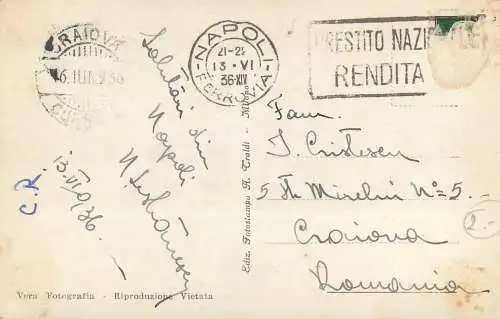 CRAIOVA
16. IUN. 936
NAPOLI
21-22
13 · VI
36·XIV
FERROVIA
PRESTITO NAZI
RENDITA
Salutări din
Napoli
13.VI.936.
C.R.
Fam.
I. Cristescu
5 Str. Mirelui No=5.
Craiova
Romania
2.-
Ediz. Fotostampa A. Traldi - Milano
Vera Fotografia - Riproduzione Vietata